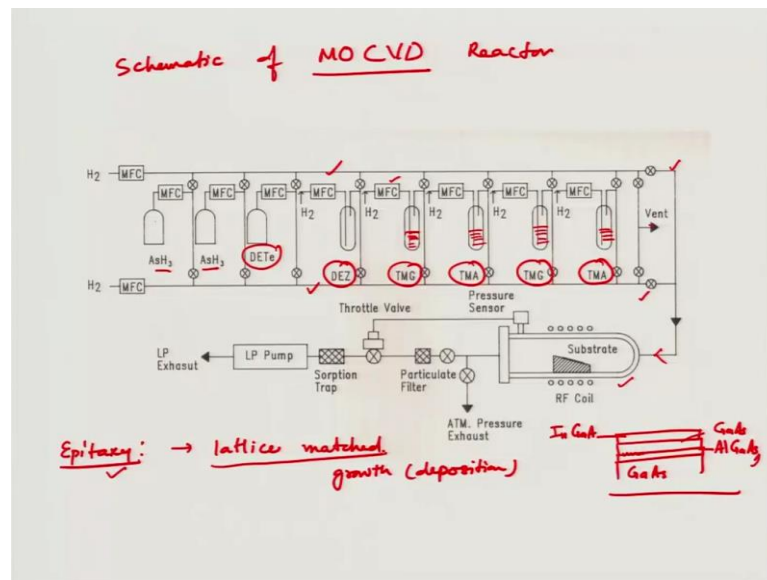 Schematic of MOCVD Reactor
H2 MFC
MFC MFC MFC MFC MFC MFC MFC MFC
H2 H2 H2 H2 H2
Vent
AsH3 AsH3 DETe
DEZ TMG TMA TMG TMA
H2 MFC
Throttle Valve
Pressure Sensor
LP Exhsust
LP Pump
Sorption Trap
Particulate Filter
Substrate
RF Coil
ATM. Pressure Exhaust
Epitaxy: → lattice matched.
growth (deposition)
InGaA GaAs
AlGaAs
GaAs